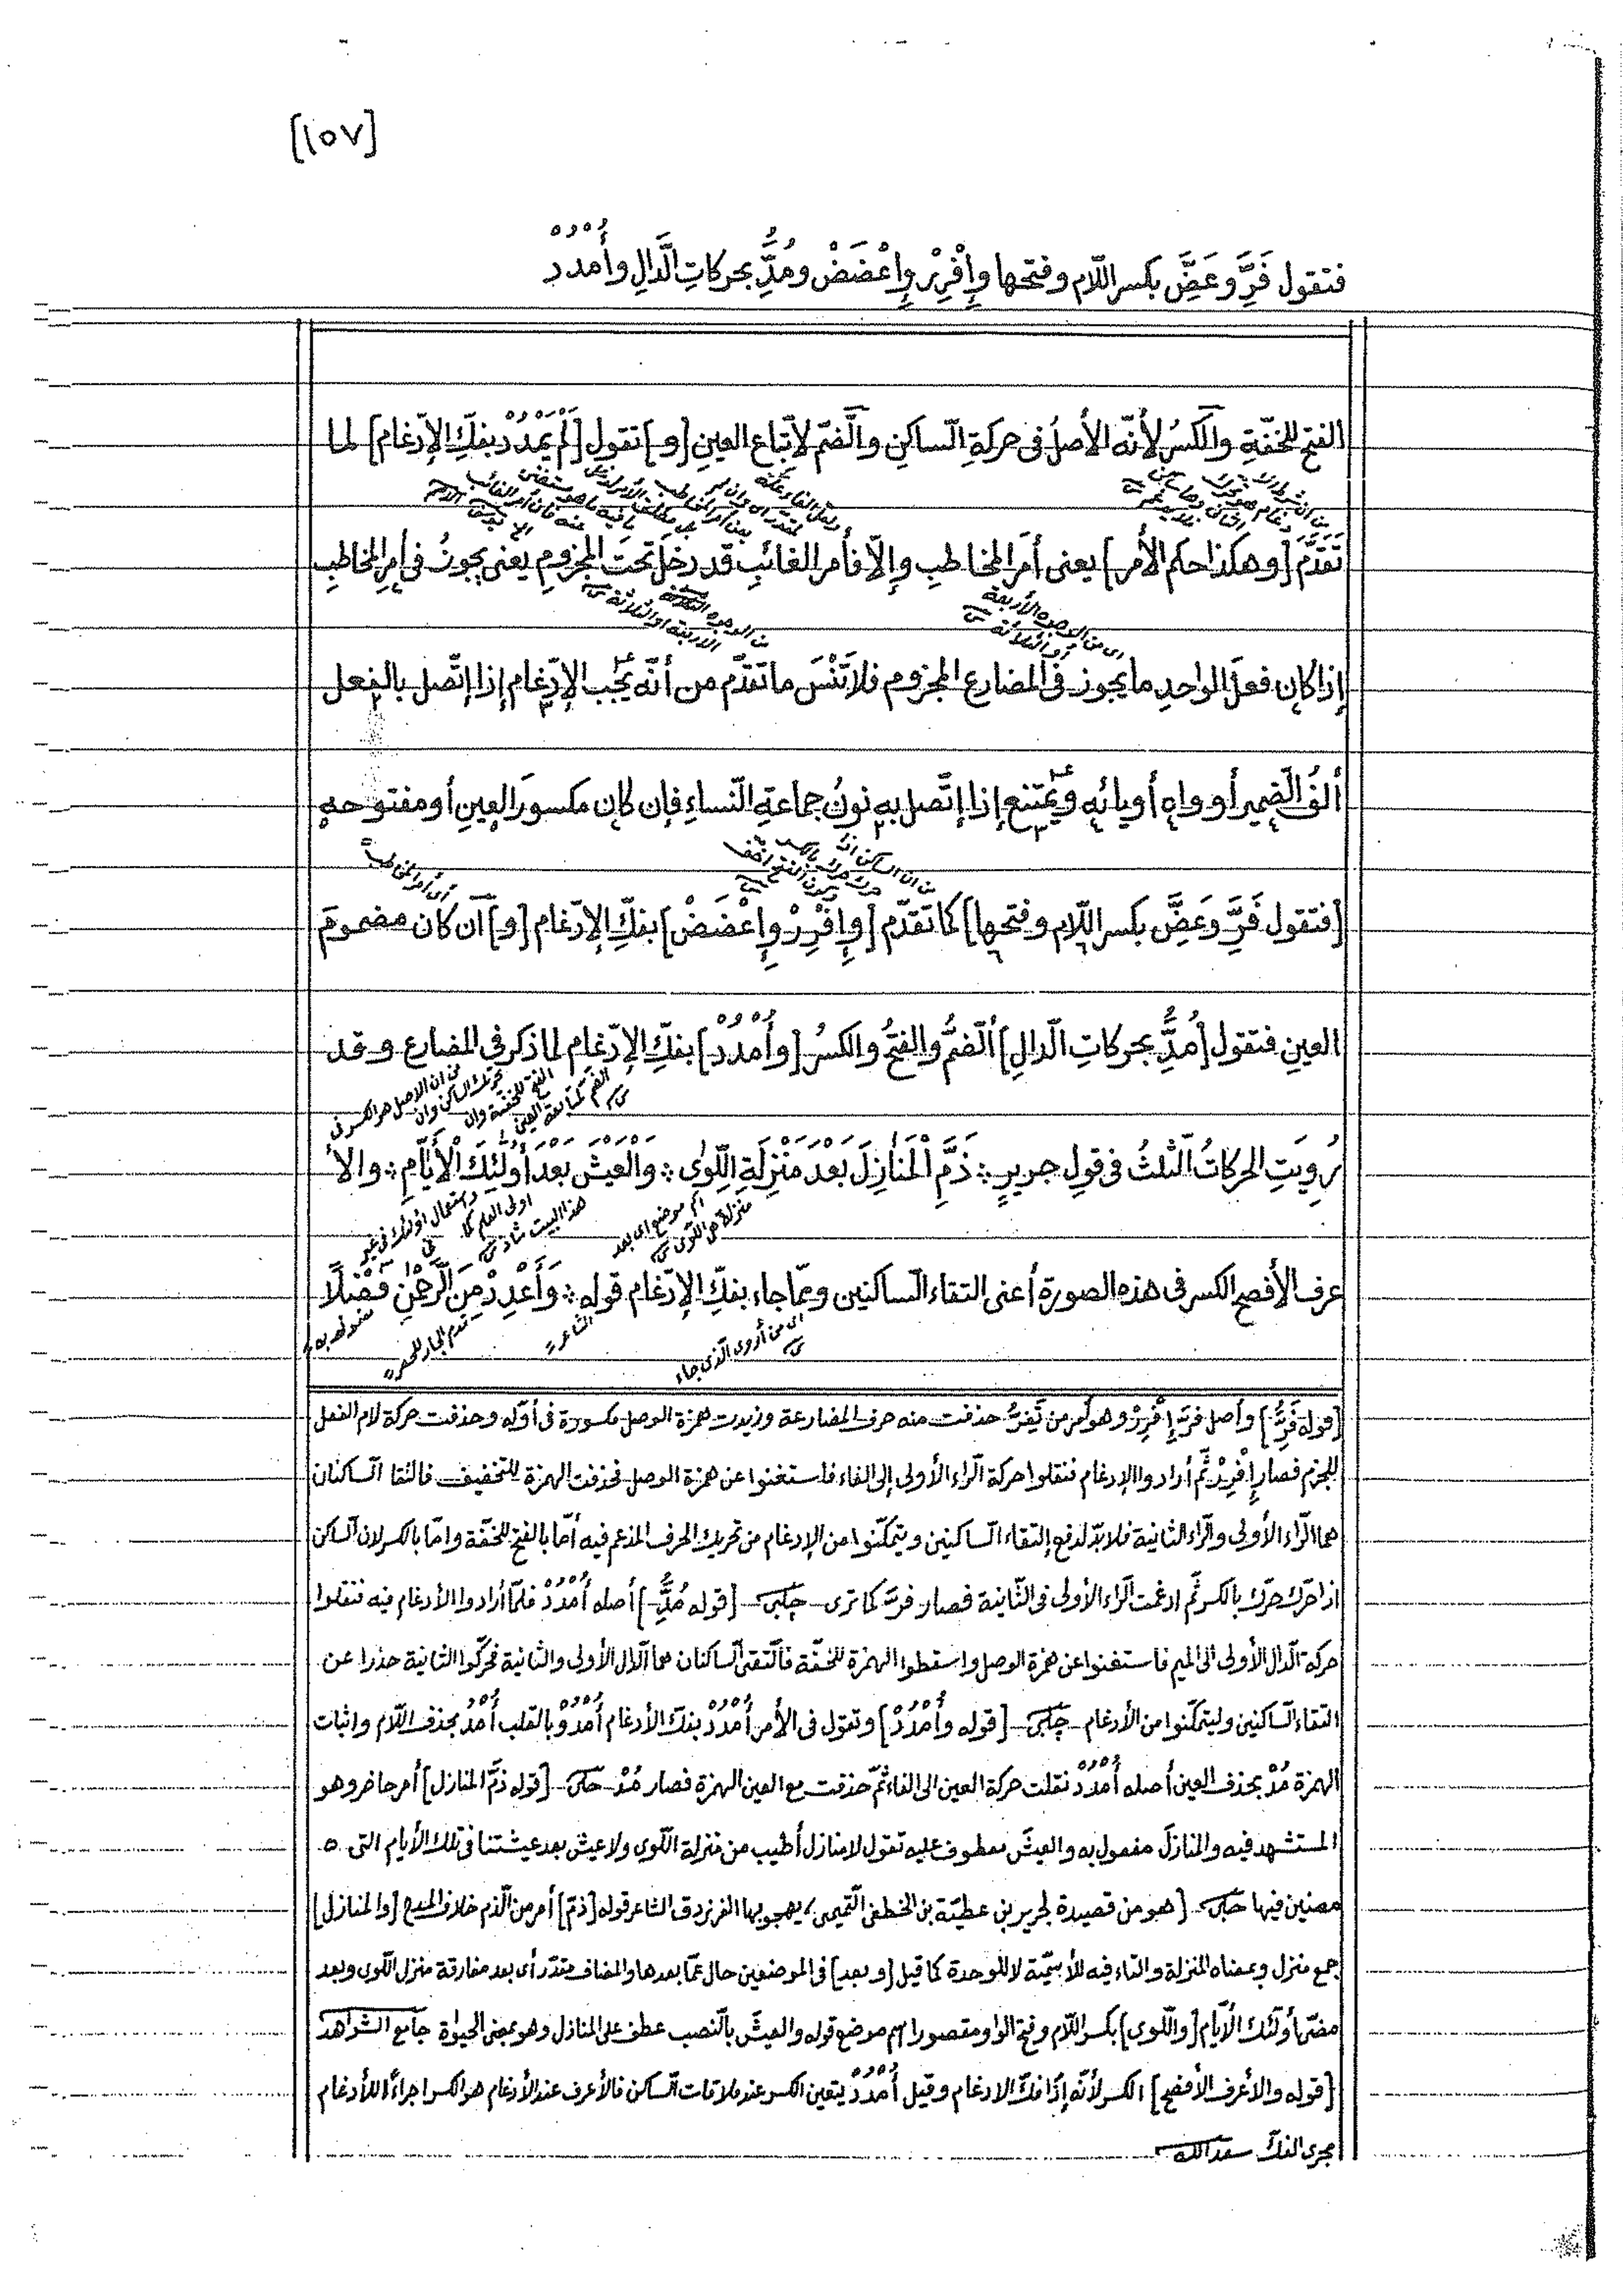 [١٥٧]
فتقول فَرِّ وعَضِّ بكسر اللّام وفتحها وإِفْرِرْ وإِعْضَضْ ومُدُّ بحركاتِ الدّالِ وأُمْدُدْ
الفتح للخفّةِ والكسرُ لأنّه الأصلُ فى حركةِ السّاكنِ والضّم لاتباع العينِ [و] تقول [لَمْ يَمْدُدْ بفكّ الإدّغام] لما
تَقَدَّمَ [وهكذا حكم الأمر] يعنى أمرَ المخاطبِ وإلّا فأمر الغائبِ قد دخل تحتَ المجزومِ يعنى يجوزُ فى أمرِ المخاطبِ
اى من الوجوه الأربعة
أو الثلاثة
إذا كان فعلَ الواحدِ ما يجوز فى المضارع المجزوم فلا تَنْسَ ما تَقدّم من أنّه يجب الإدّغام إذا إتّصل بالفعل
ألفُ الضّمير أو واوه أو يائه ويمتنع إذا إتّصل به نونُ جماعةِ النّساءِ فإن كان مكسورَ العينِ أو مفتوحه
أى أمر المخاطب
[فتقول فَرِّ وَعَضِّ بكسر اللّام وفتحها] كما تَقدّم [وإِفْرِرْ وإِعْضَضْ] بفكّ الإدّغام [و] ان كان مضمومَ
العينِ فتقول [مُدُّ بحركاتِ الدّالِ] ألضّمُّ والفتحُ والكسرُ [وأُمْدُدْ] بفكّ الإدّغام لما ذكر فى المضارع وقد
من ان الاصل هو الكسر فى
تحريك الساكن وان
الفتح للخفة وان
الضم لمتابعة العين
رُوِيَتِ الحركاتُ الثّلثُ فى قولِ جريرٍ : ذَمِّ الْمَنازِلَ بَعْدَ مَنْزِلَةِ اللِّوىٰ : وَالْعَيْشَ بَعْدَ أُولٰئِكَ الْأَيّامِ : والأ
اسم موضع اى بعد
منزلة من اللوى
عرف الأفصح الكسر فى هذه الصورة أعنى التقاء السّاكنين وممّا جاء بفكّ الإدّغام قوله : وَأَعْدِدْ مِنَ الرَّحْمٰنِ فَضْلًا
الشاعر
تقدم الجار للحصر
مفعول به
[قوله فَرِّ] وأصل فرّ إِفْرِرْ وهو أمر من تَفِرُّ حذفت منه حرف المضارعة وزيدت همزة الوصل مكسورة فى أوّله وحذفت حركة لام الفعل
للجزم فصار إِفْرِرْ ثمّ أرادوا الإدغام فنقلوا حركة الرّاء الأولى إلى الفاء فاستغنوا عن همزة الوصل فحذفت الهمزة للتخفيف فالتقا السّاكنان
هما الرّاء الأولى والرّاء الثانية فلابدّ لدفع إلتقاء السّاكنين ويتمكّنوا من الإدغام من تحريك الحرف المدغم فيه أمّا بالفتح للخفّة وامّا بالكسر لان السّاكن
اذا حرّك حرّك بالكسر ثمّ ادغمت الرّاء الأولى فى الثّانية فصار فرّ كما ترى چلبى [قوله مُدُّ] أصله أُمْدُدْ فلمّا أرادوا الأدغام فيه فنقلوا
حركة الدّال الأولى الى الميم فاستغنوا عن همزة الوصل واسقطوا الهمزة للخفّة فالتقى السّاكنان هما الدّال الأولى والثانية فحرّكوا الثانية حذرا عن
التقاء السّاكنين وليتمكّنوا من الأدغام چلبى [قوله وأُمْدُدْ] وتقول فى الأمر أُمْدُدْ بفكّ الأدغام أُمْدُوْ بالقلب أُمْدُ بحذف اللّام واثبات
الهمزة مُدْ بحذف العين أصله أُمْدُدْ نقلت حركة العين الى الفاء ثمّ حذفت مع العين الهمزة فصار مُدْ حلبى [قوله ذمّ المنازل] أمر حاضر وهو
المستشهد فيه والمنازلَ مفعول به والعيشَ معطوف عليه تقول لامنازل أطيب من منزلة اللّوى ولا عيش بعد عيشتنا فى تلك الأيام التى
مضين فيها حلبى [هو من قصيدة لجرير بن عطيّة بن الخطفى التّميمى يهجو بها الفرزدق الشاعر قوله [ذمّ] أمر من الّذم خلاف المدح [والمنازل]
جمع منزل وبمعناه المنزلة والتاء فيه للأسميّة لا للوحدة كما قيل [وبعد] فى الموضعين حال عمّا بعدها والمضاف مقدّر أى بعد مفارقة منزل اللّوى وبعد
مضىّ أولئك الأيّام [واللّوى] بكسر اللّام وفتح الواو مقصورا اسم موضع قوله والعيشَ بالنّصب عطف على المنازل وهو بمعنى الحيوة جامع الشواهد
[قوله والأعرف الأفصح] الكسر لأنّه إذا فكّ الادغام وقيل أُمْدُدْ يتعين الكسر عند ملاقات السّاكن فالأعرف عند الأدغام هو الكسر اجراءً للأدغام
مجرى الفكّ سعد الله